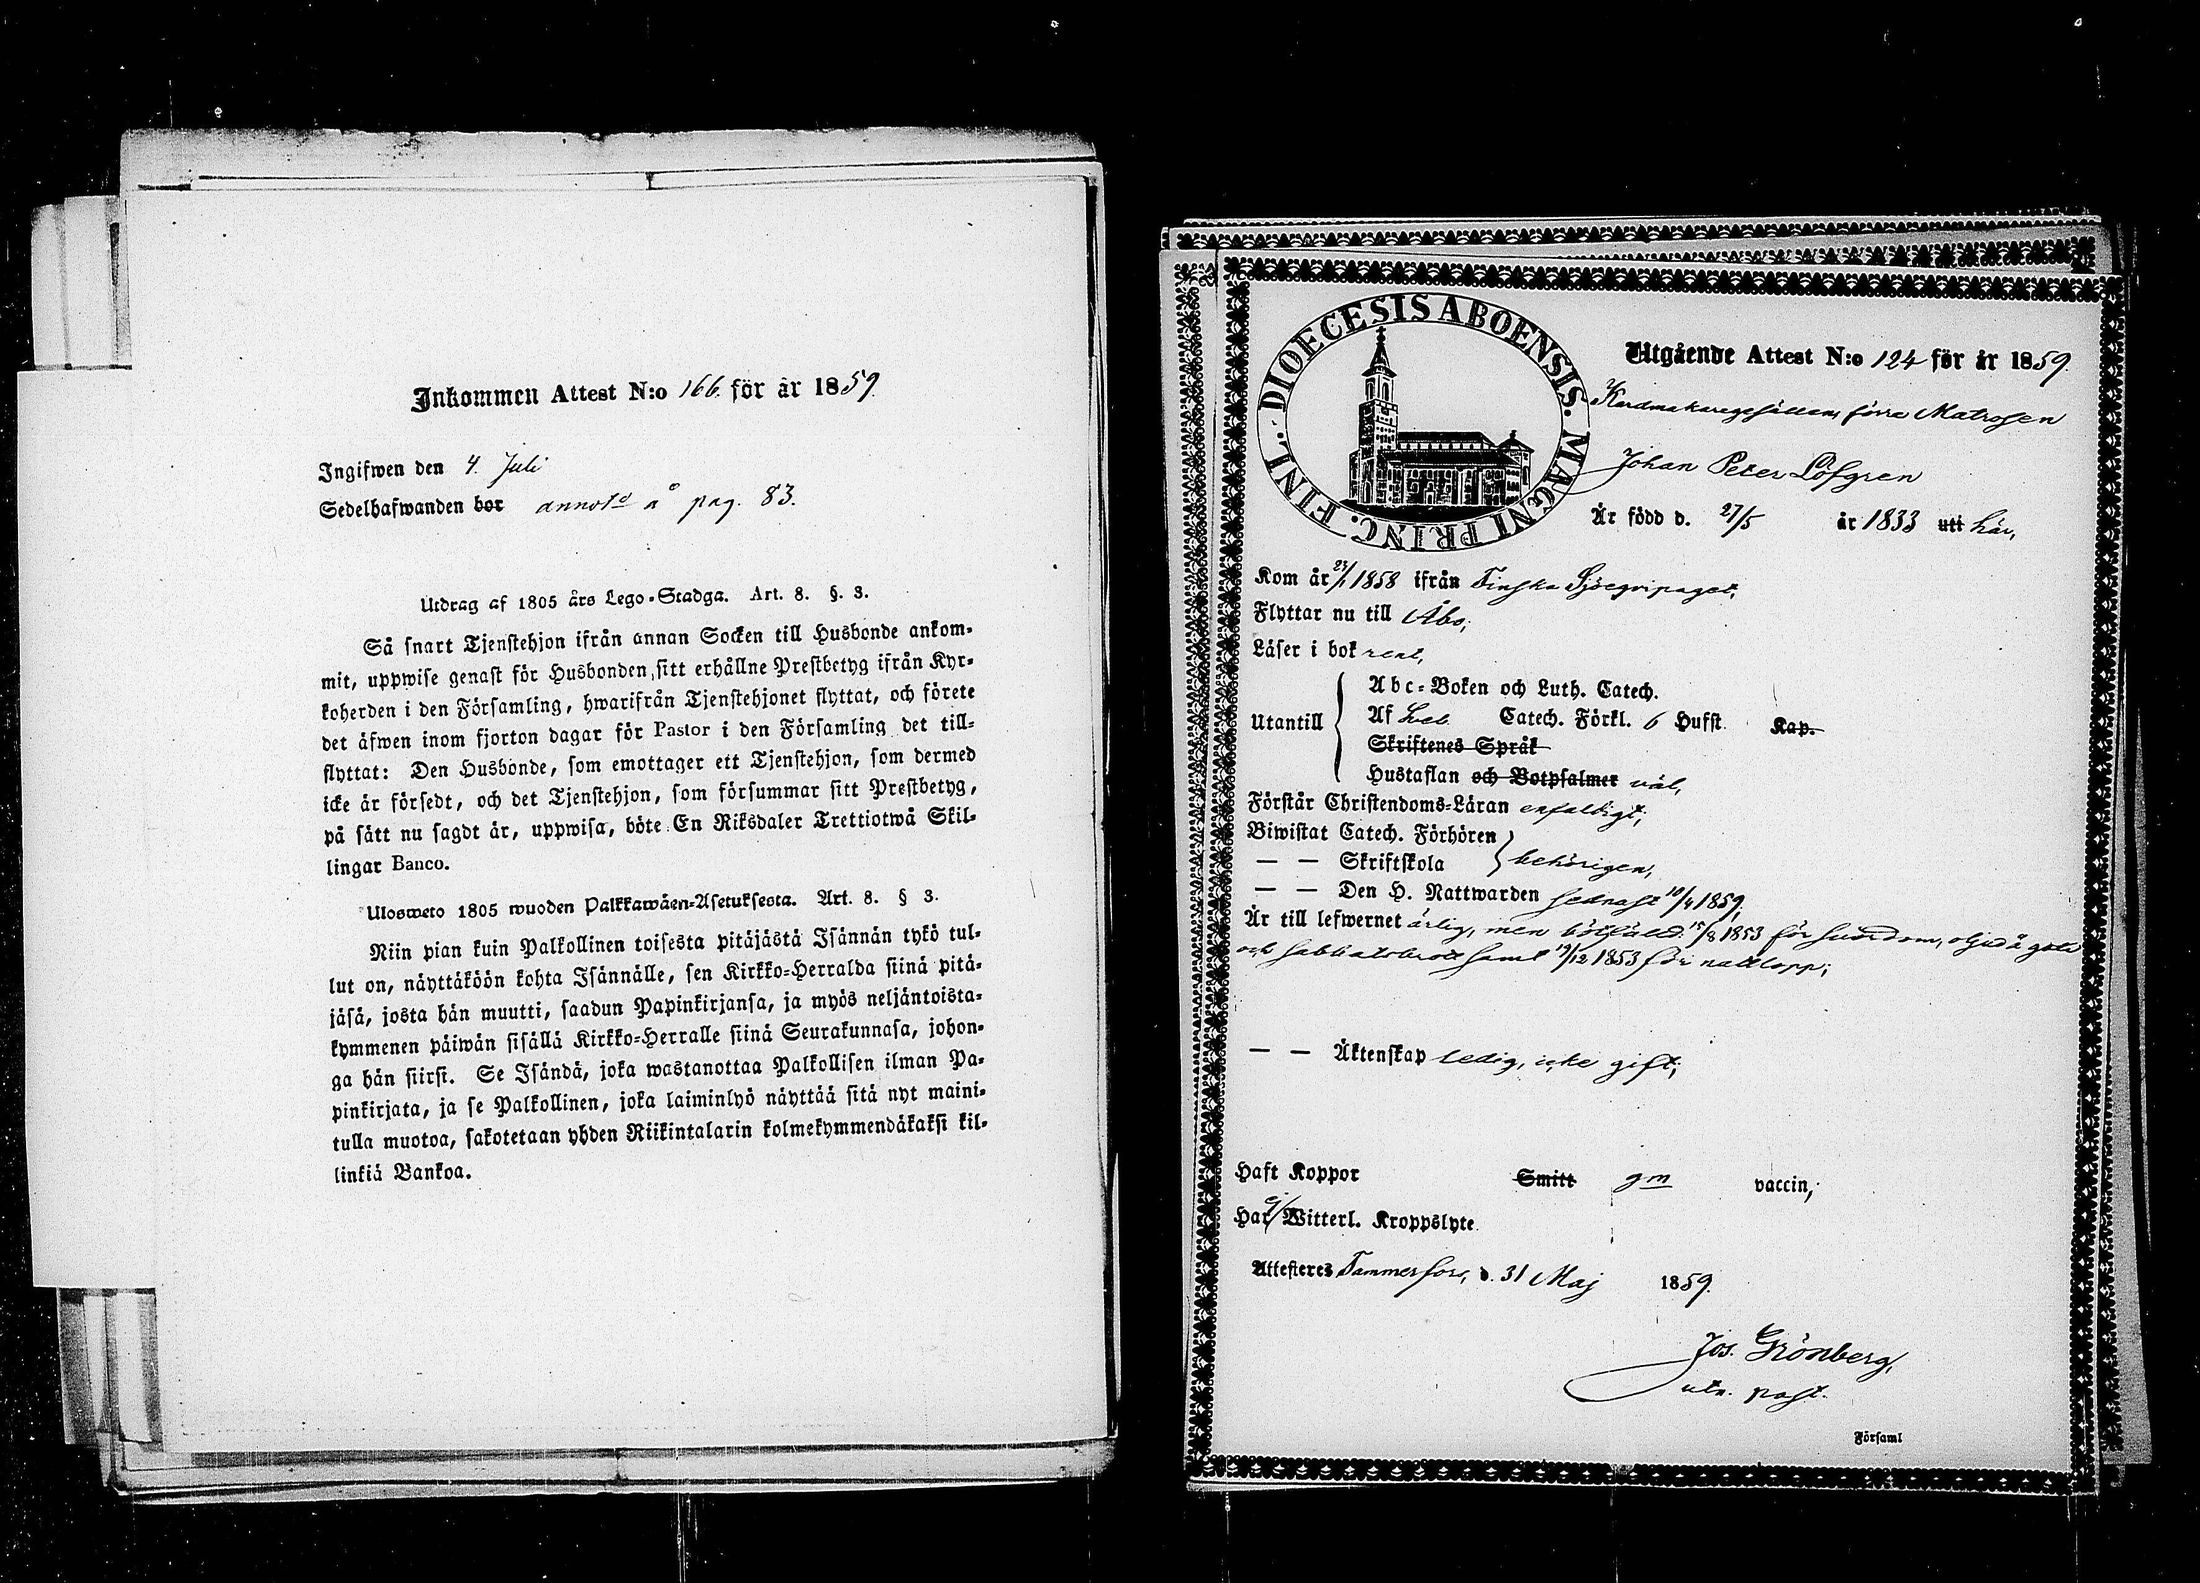 Inkommen Attest N:o 166. för år 1859.
Ingifwen den 4. Juli
Sedelhafwanden bor annotd å pag. 83.
Utdrag af 1805 års Lego-Stadga. Art. 8. §. 3.
Så snart Tjenstehjon ifrån annan Socken till Husbonde ankom-
mit, uppwise genast för Husbonden, sitt erhållne Prestbetyg ifrån Kyr-
koherden i den Församling, hwarifrån Tjenstehjonet flyttat, och förete
det äfwen inom fjorton dagar för Pastor i den Församling det till-
flyttat: Den Husbonde, som emottager ett Tjenstehjon, som dermed
icke är försedt, och det Tjenstehjon, som försummar sitt Prestbetyg,
på sätt nu sagdt är, uppwisa, böte En Riksdaler Trettiotwå Skil-
lingar Banco.
Ulosweto 1805 wuoden Palkkawäen-Asetuksesta. Art. 8. § 3.
Niin pian kuin Palkollinen toisesta pitäjästä Isännän tykö tul-
lut on, näyttäköön kohta Isännälle, sen Kirkko-Herralda siinä pitä-
jäsä, josta hän muutti, saadun Papinkirjansa, ja myös neljäntoista-
kymmenen päiwän sisällä Kirkko-Herralle siinä Seurakunnasa, johon-
ga hän siirsi. Se Isändä, joka wastanottaa Palkollisen ilman Pa-
pinkirjata, ja se Palkollinen, joka laiminlyö näyttää sitä nyt maini-
tulla muotoa, sakotetaan yhden Riikintalarin kolmekymmendäkaksi kil-
linkiä Bankoa.
DIOECESIS ABOENSIS. MAGNI PRINC. FINL.
Utgående Attest N:o 124 för år 1859.
Kardmakaregesällen, förra Matrosen
Johan Peter Löfgren
Är född d. 27/5 år 1833 uti här,
Kom år 23/1 1858 ifrån Finska Sjöeqvipaget,
Flyttar nu till Åbo;
Läser i bok rent,
Abc-Boken och Luth. Catech.
Utantill Af Sveb Catech. Förkl. 6 Hufst. Kap.
Skriftenes Språk
Hustaflan och Botpsalmer väl,
Förstår Christendoms-Läran enfaldigt;
Biwistat Catech. Förhören
— — Skriftskola behörigen,
— — Den H. Nattwarden sednast 10/4 1859.
Är till lefwernet ärlig, men bötfälld 15/8 1853 för svordom, oljud å gata
och sabbatsbrott samt 19/12 1853 för nattlopp;
— — Äktenskap ledig, icke gift;
Haft Koppor Smitt gm vaccin,
Har ej Witterl. Kroppslyte
Attesteres Tammerfors, d. 31 Maj 1859.
Jos. Grönberg,
utn. past.
Församl